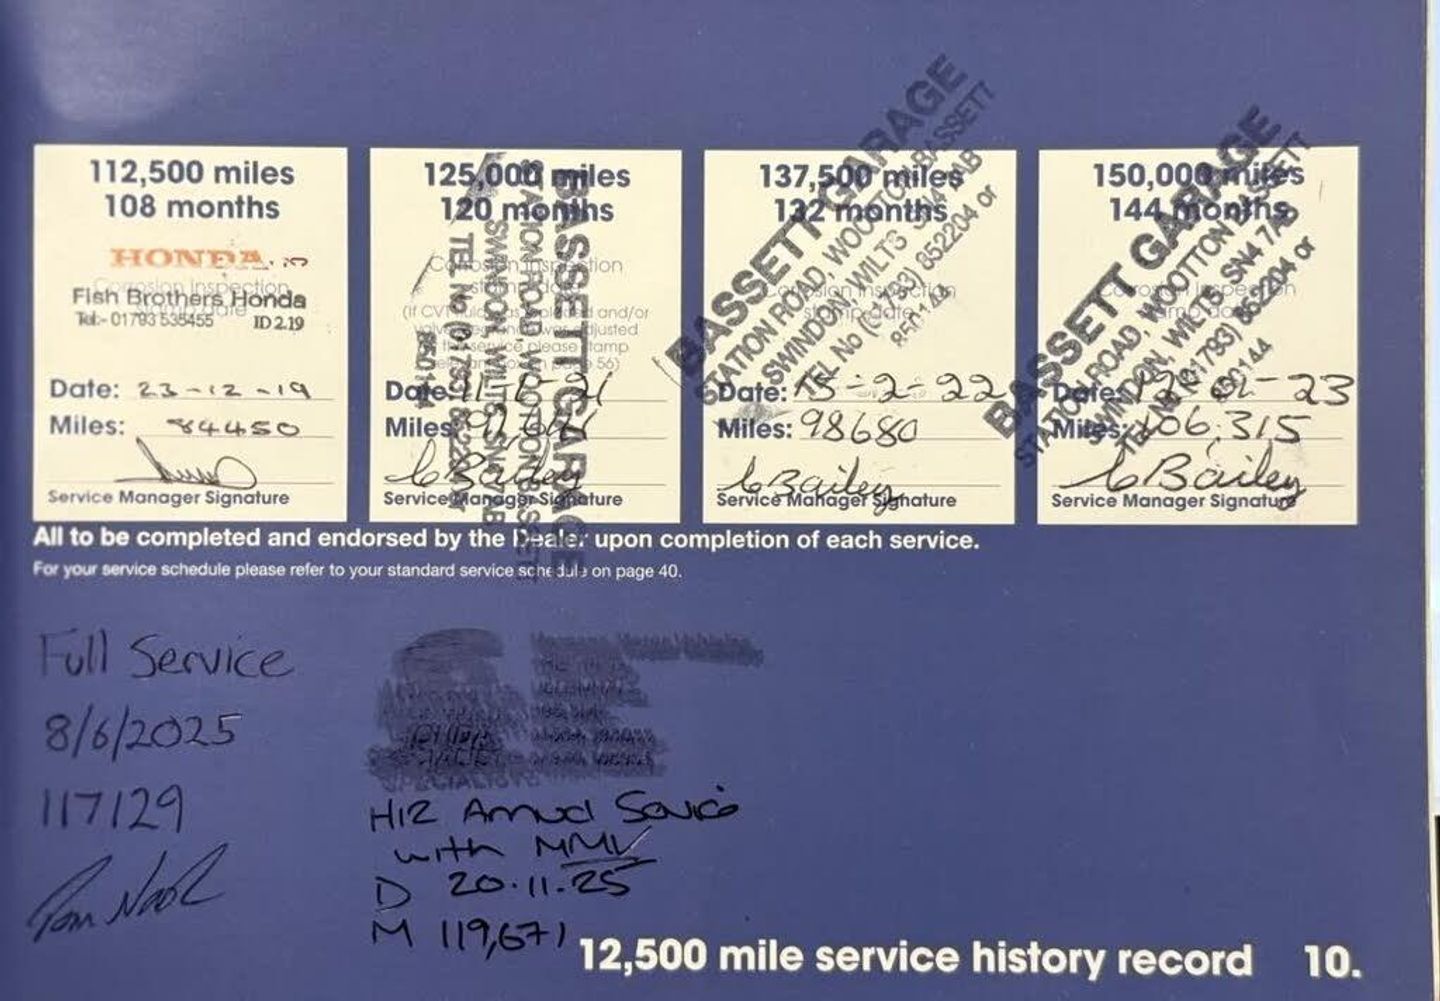 112,500 miles
108 months
HONDA
Corrosion Inspection
Fish Brothers Honda
Tel:- 01793 535455 ID 2.19
Date: 23-12-19
Miles: 84450
Service Manager Signature
125,000 miles
120 months
Corrosion Inspection
(If CVT fluid was replaced and/or
valve clearances was adjusted
at this service please stamp
BASSETT GARAGE
STATION ROAD, WOOTTON BASSETT
SWINDON, WILTS SN4 7AB
TEL No (01793) 852204 or
850144
Date: 21
Miles:
C Bailey
Service Manager Signature
137,500 miles
132 months
Corrosion Inspection
stamp date
BASSETT GARAGE
STATION ROAD, WOOTTON BASSETT
SWINDON, WILTS SN4 7AB
TEL No (01793) 852204 or
850144
Date: 15-2-22
Miles: 98680
C Bailey
Service Manager Signature
150,000 miles
144 months
Corrosion Inspection
BASSETT GARAGE
STATION ROAD, WOOTTON BASSETT
SWINDON, WILTS SN4 7AB
TEL No (01793) 852204 or
850144
Date: 23
Miles: 106,315
C Bailey
Service Manager Signature
All to be completed and endorsed by the Dealer upon completion of each service.
For your service schedule please refer to your standard service schedule on page 40.
Full Service
8/6/2025
117129
Tom
SPECIALISTS
Annual Service
with MMV
D 20.11.25
M 119,671
12,500 mile service history record 10.